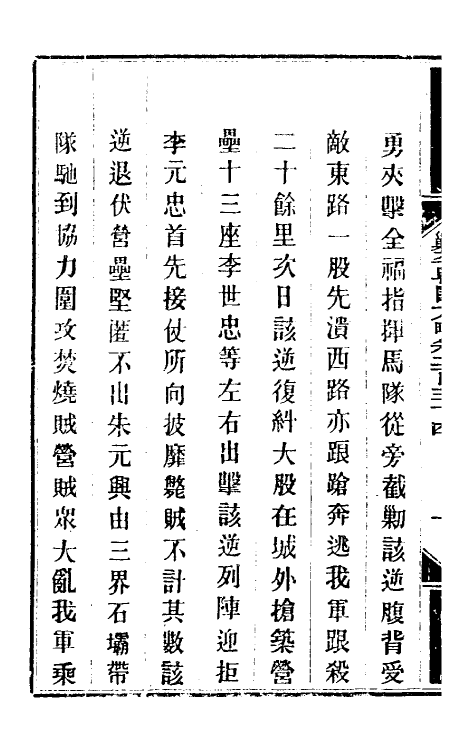 勇夾擊全福指揮馬隊從旁截勦該逆腹背受
敵東路一股先潰西路亦踉蹌奔逃我軍跟殺
二十餘里次日該逆復糾大股在城外搶築營
壘十三座李世忠等左右出擊該逆列陣迎拒
李元忠首先接仗所向披靡斃賊不計其數該
逆退伏營壘堅匿不出朱元興由三界石壩帶
隊馳到協力圍攻焚燒賊營賊眾大亂我軍乘